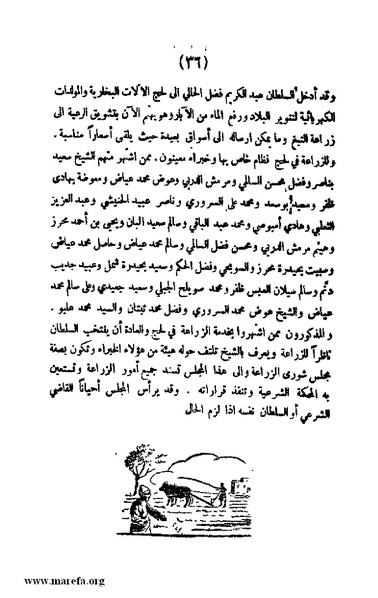 (٣٦)
وقد أدخل السلطان عبد الكريم فضل الحالي الى لحج الآلات البخارية والمولدات
الكهربائية لتنوير البلاد ورفع الماء من الآبار وهو يهتم الآن بتشويق الرعية الى
زراعة التبغ وما يمكن ارساله الى أسواق بعيدة حيث يلقى أسعاراً مناسبة .
وللزراعة في لحج نظام خاص بها وخبراء معينون . ممن اشتهر منهم الشيخ سعيد
بناصر وفضل محسن السالمي ومرمش الدربي وعوض محمد عياض ومعوضة بهادى
ظفر وسعيد بوسعد ومحمد على السرورى وناصر عبيد الحنيشي وعبد العزيز
الثعلبي وهادي أمبوعي ومحمد عبد الباقي وسالم سعيد البان ويحيى بن أحمد محرز
وهيثم مرمش الدربي ومحسن فضل السالمي وسالم محمد عياض وحاصل محمد عياض
وسبيت بحيدرة محرز والسويحي وفضل الحكم وسعيد بحيدرة فشل وعبيد جديب
دكم وسالم ميلان العبس ظفر ومحمد صويلح الجبلي وسعيد جعيدي وعلى سالم محمد
عياض والشيخ عوض محمد السروري وفضل محمد ثبتان والسيد محمد عليو .
والمذكورون ممن اشتهروا بخدمة الزراعة في لحج والعادة أن ينتخب السلطان
ناظراً للزراعة ويعرف بالشيخ تلتف حوله هيئة من هؤلاء الخبراء وتكون بصفة
مجلس شورى الزراعة والى هذا المجلس تسند جميع أمور الزراعة وتستعين
به المحكمة الشرعية وتنفذ قراراته . وقد يرأس المجلس أحياناً القاضي
الشرعي أو السلطان نفسه اذا لزم الحال
www.marefa.org